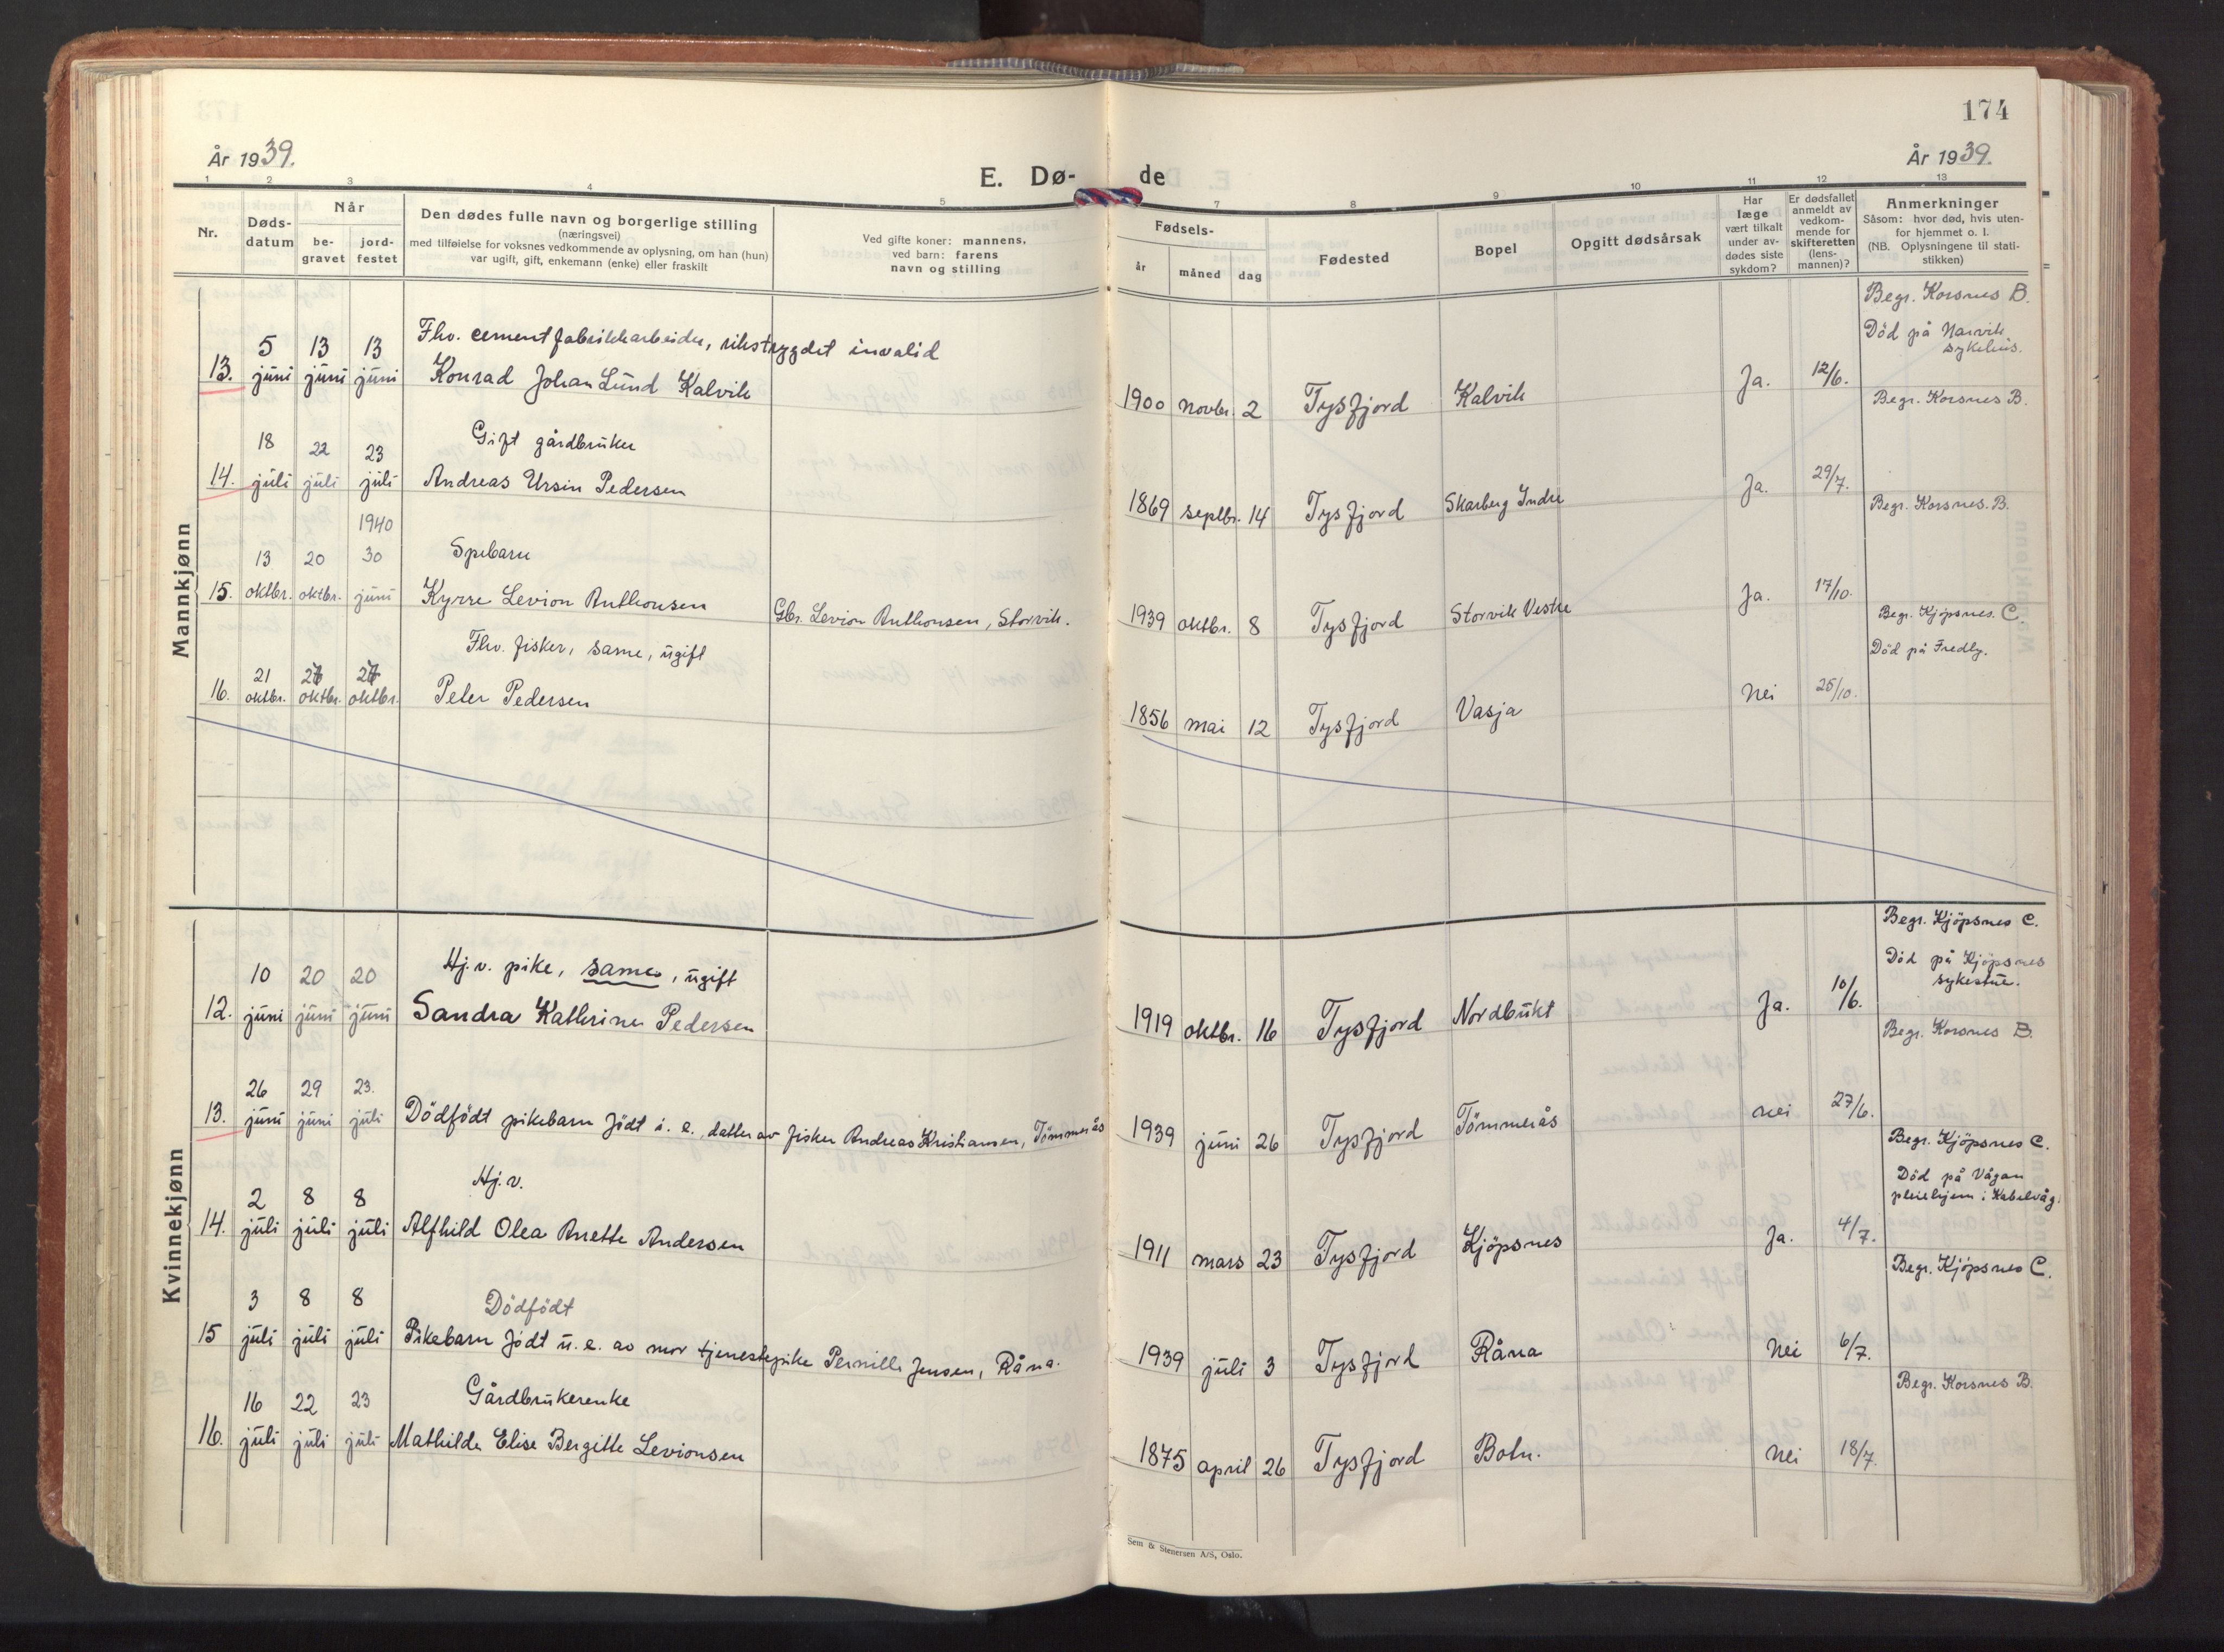 174
År 1939.
E. Dø-
de
År 1939.
1 2 3 4 5 7 8 9 10 11 12 13
Nr.
Døds-
datum
Når
be-
gravet
jord-
festet
Den dødes fulle navn og borgerlige stilling
(næringsvei)
med tilføielse for voksnes vedkommende av oplysning, om han (hun)
var ugift, gift, enkemann (enke) eller fraskilt
Ved gifte koner: mannens,
ved barn: farens
navn og stilling
Fødsels-
år
måned
dag
Fødested
Bopel
Opgitt dødsårsak
Har
læge
vært tilkalt
under av-
dødes siste
sykdom?
Er dødsfallet
anmeldt av
vedkom-
mende for
skifteretten
(lens-
mannen)?
Anmerkninger
Såsom: hvor død, hvis uten-
for hjemmet o. l.
(NB. Oplysningene til stati-
stikken)
Mannkjønn
Begr. Korsnes B.
5 13 13 Fhv. cementfabrikkarbeider, rikstrygdet invalid
Död på Narvik
sykehus.
13. juni juni juni Konrad Johan Lund Kalvik 1900 novbr. 2 Tysfjord Kalvik Ja. 12/6.
18 22 23 Gift gårdbruker Begr. Korsnes B.
14. juli juli juli Andreas Ursin Pedersen 1869 septbr. 14 Tysfjord Skarberg Indre Ja. 29/7.
1940 Begr. Korsnes. B.
13 20 30 Spebarn
15. oktbr. oktbr. juni Kyrre Levion Anthonsen Gbr. Levion Anthonsen, Storvik. 1939 oktbr. 8 Tysfjord Storvik Vestre Ja. 17/10.
Fhv. fisker, same, ugift Begr. Kjöpsnes. C.
Död på Fredly.
21
16. oktbr. oktbr. oktbr. Peter Pedersen 1856 mai 12 Tysfjord Vasja Nei 25/10.
Kvinnekjønn
Begr. Kjöpsnes C.
10 20 20 Hj. v. pike, same, ugift
Död på Kjöpsnes
sykestue.
12. juni juni juni Sandra Kathrine Pedersen 1919 oktbr. 16 Tysfjord Nordbukt Ja. 10/6.
26 29 23. Begr. Korsnes B.
13. juni juni juli Dödfödt pikebarn födt i. e., datter av fisker Andreas Kristiansen, Tömmerås 1939 juni 26 Tysfjord Tömmerås nei 27/6.
2 8 8 Hj. v. Begr. Kjöpsnes C.
Död på Vågan
pleiehjem i Kabelvåg.
14. juli juli juli Alfhild Olea Anette Andersen 1911 mars 23 Tysfjord Kjöpsnes Ja. 4/7.
3 8 8 Dödfödt Begr. Kjöpsnes C.
15 juli juli juli Pikebarn födt u. e. av mor tjenestepike Pernille Jensen, Råna. 1939 juli 3 Tysfjord Råna Nei 6/7.
16 22 23 Gårdbrukerenke Begr. Korsnes B.
16. juli juli juli Mathilde Elise Bergitte Levionsen 1875 april 26 Tysfjord Botn. Nei 18/7.
Sem & Stenersen A/S, Oslo.